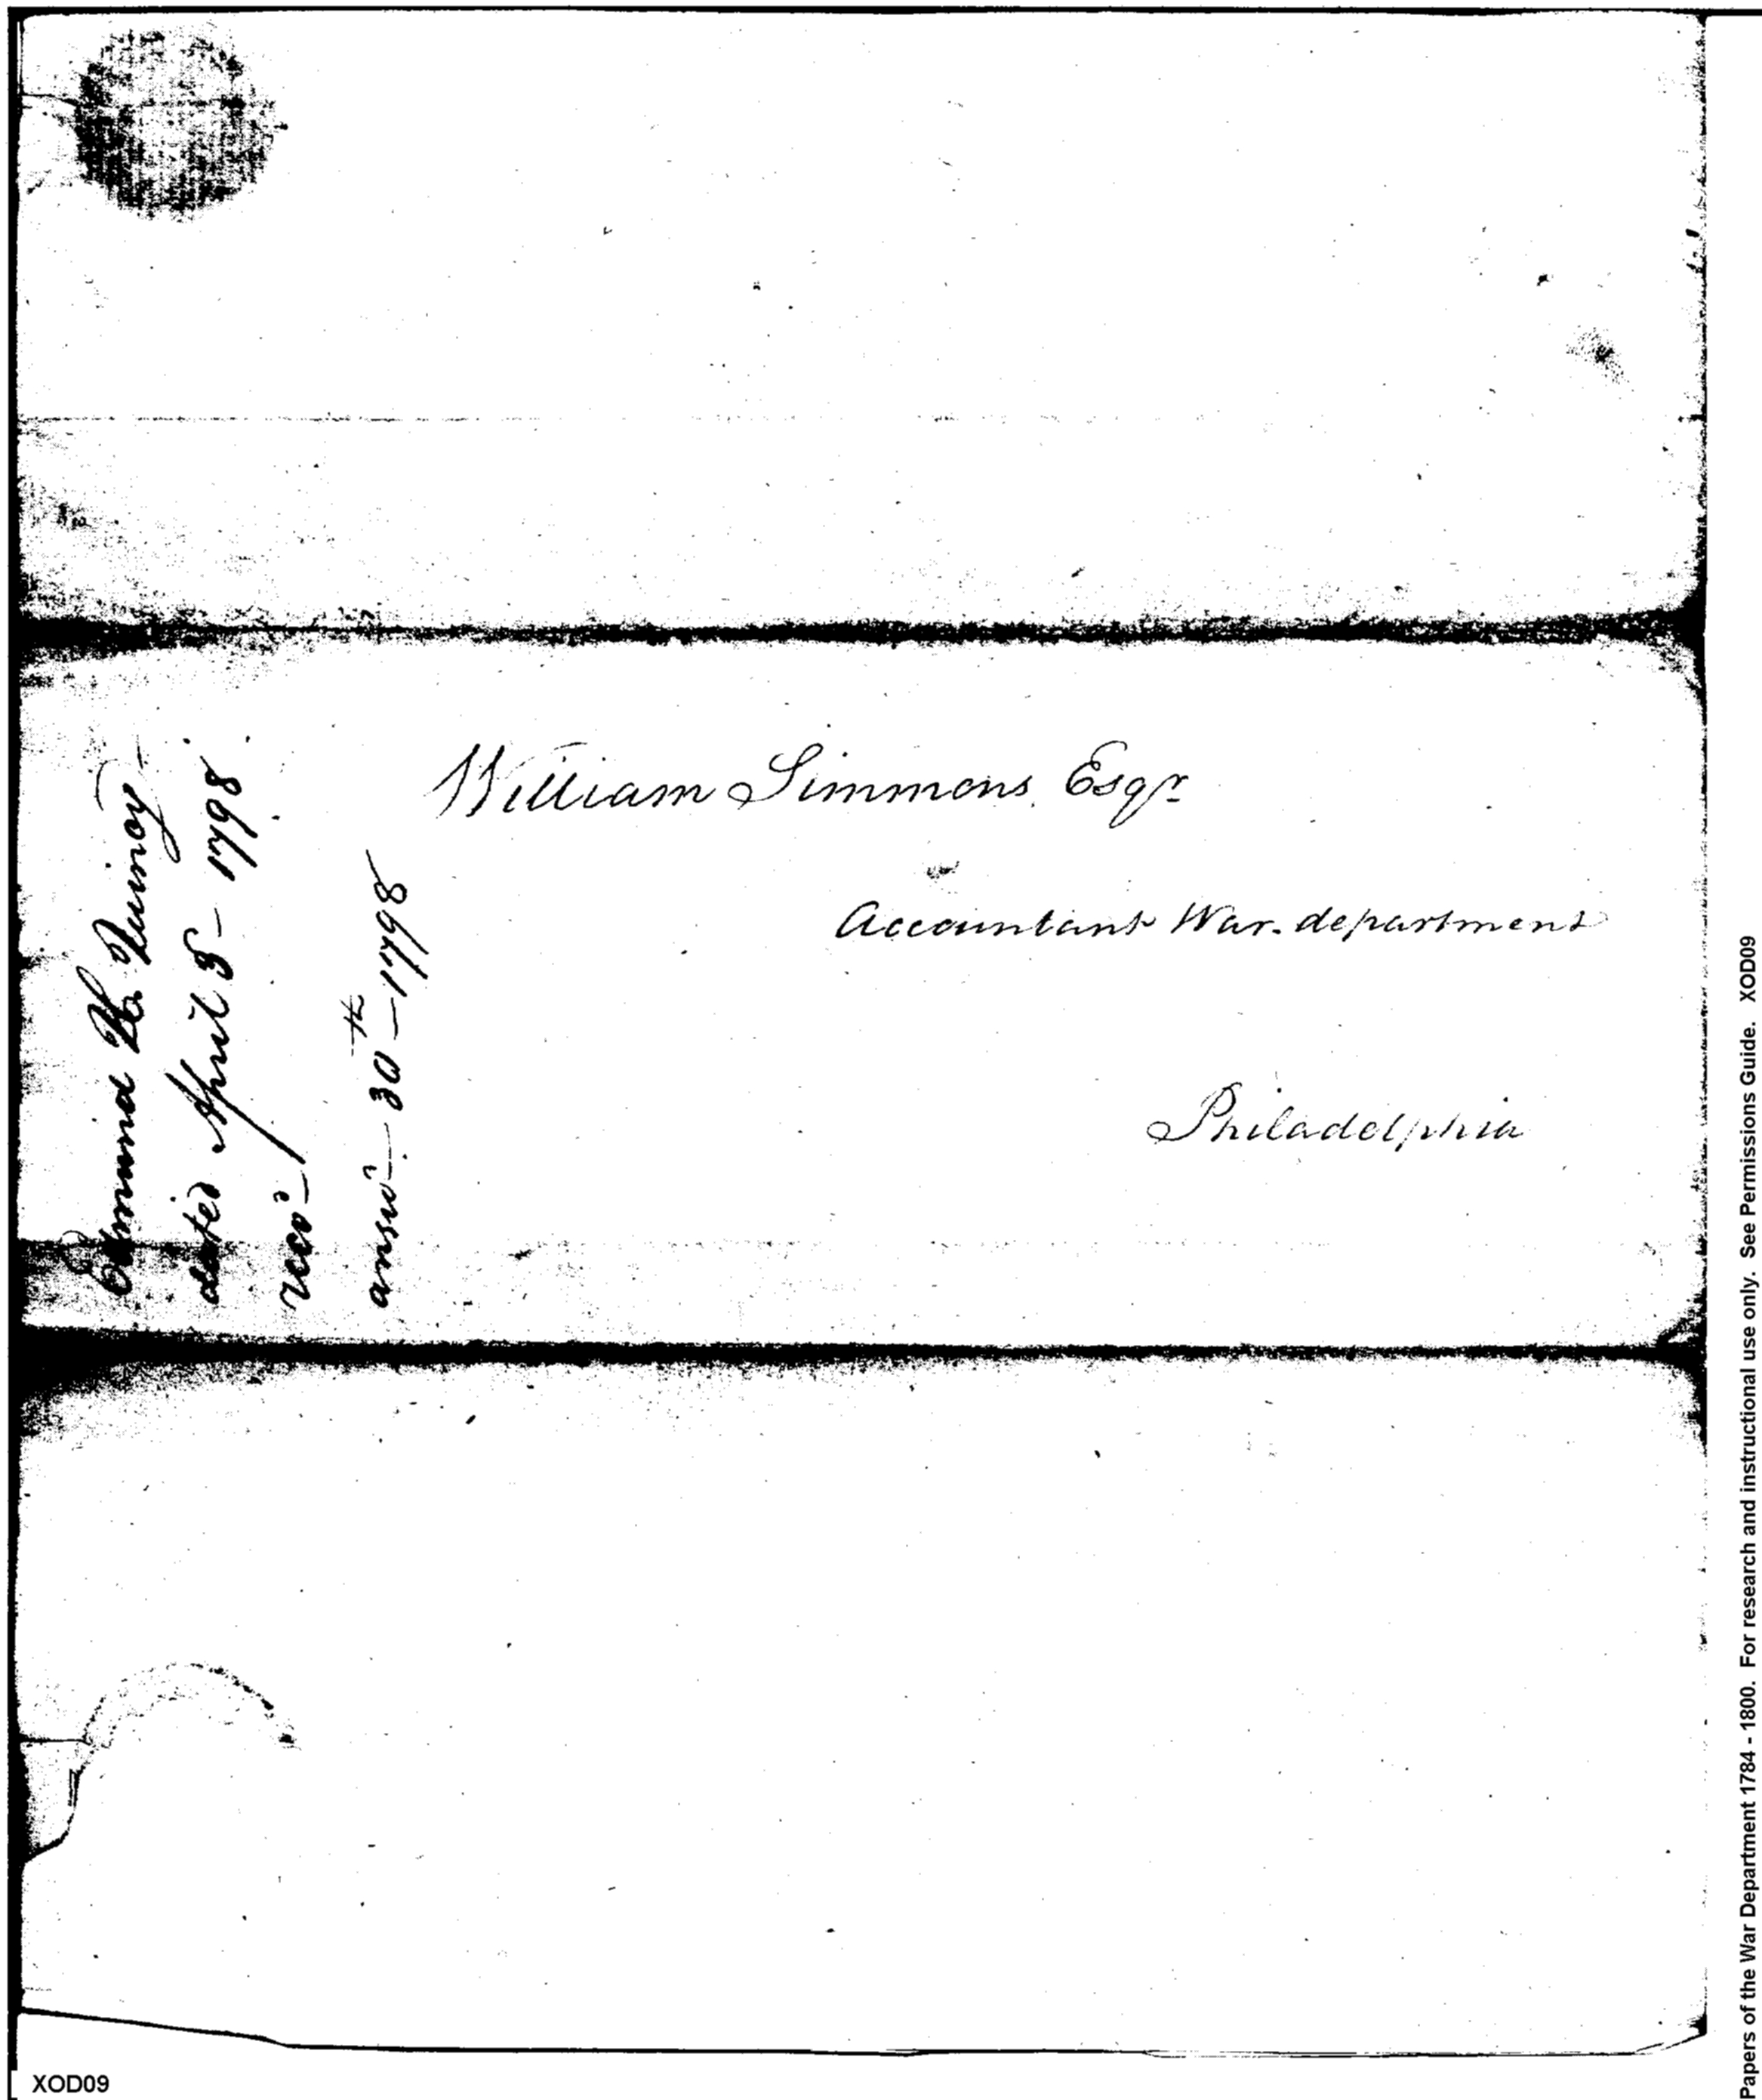 William Simmons Esqr
Accountant War department
Philadelphia
Edmund H Quincy
dated April 5 - 1798
recd -
answd - 30th - 1798
Papers of the War Department 1784 - 1800. For research and instructional use only. See Permissions Guide. XOD09
XOD09